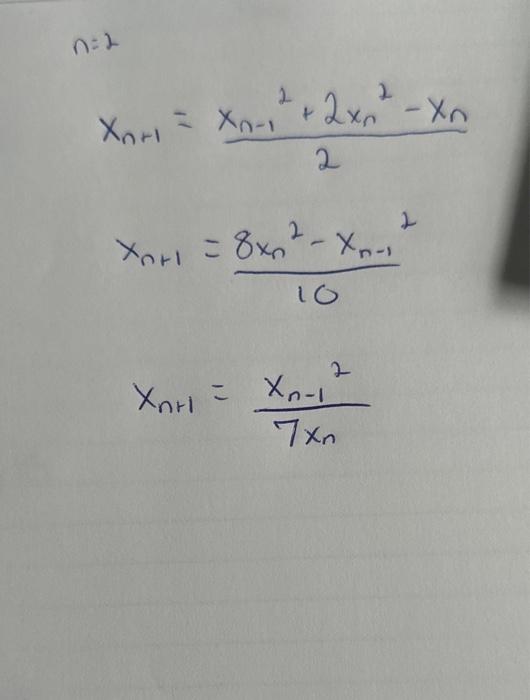 n=2
xₙ₊₁ = (xₙ₋₁² + 2xₙ² - xₙ)/2
xₙ₊₁ = (8xₙ² - xₙ₋₁²)/10
xₙ₊₁ = xₙ₋₁²/(7xₙ)